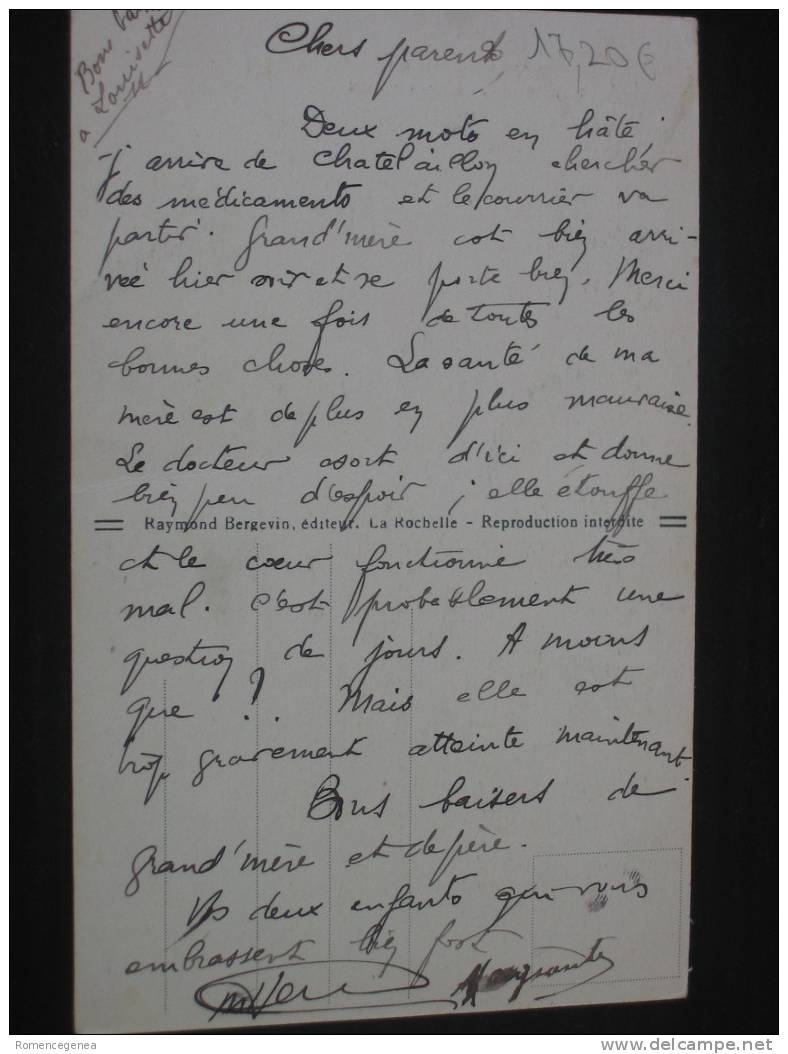 Bons
à Louisette
Chers parents 17,20€
Deux mots en hâte
j'arrive de Chatelaillon chercher
des médicaments et le courrier va
partir. Grand'mère est bien arri-
vée hier soir et se porte bien. Merci
encore une fois de toutes les
bonnes choses. La santé de ma
mère est de plus en plus mauvaise.
Le docteur sort d'ici et donne
bien peu d'espoir ; elle étouffe
Raymond Bergevin, éditeur. La Rochelle - Reproduction interdite
et le cœur fonctionne très
mal. C'est probablement une
question de jours. A moins
que ? .. Mais elle est
trop gravement atteinte maintenant.
Bons baisers de
grand'mère et de père.
Vos deux enfants qui vous
embrassent bien fort
Romencegenea
delcampe.net